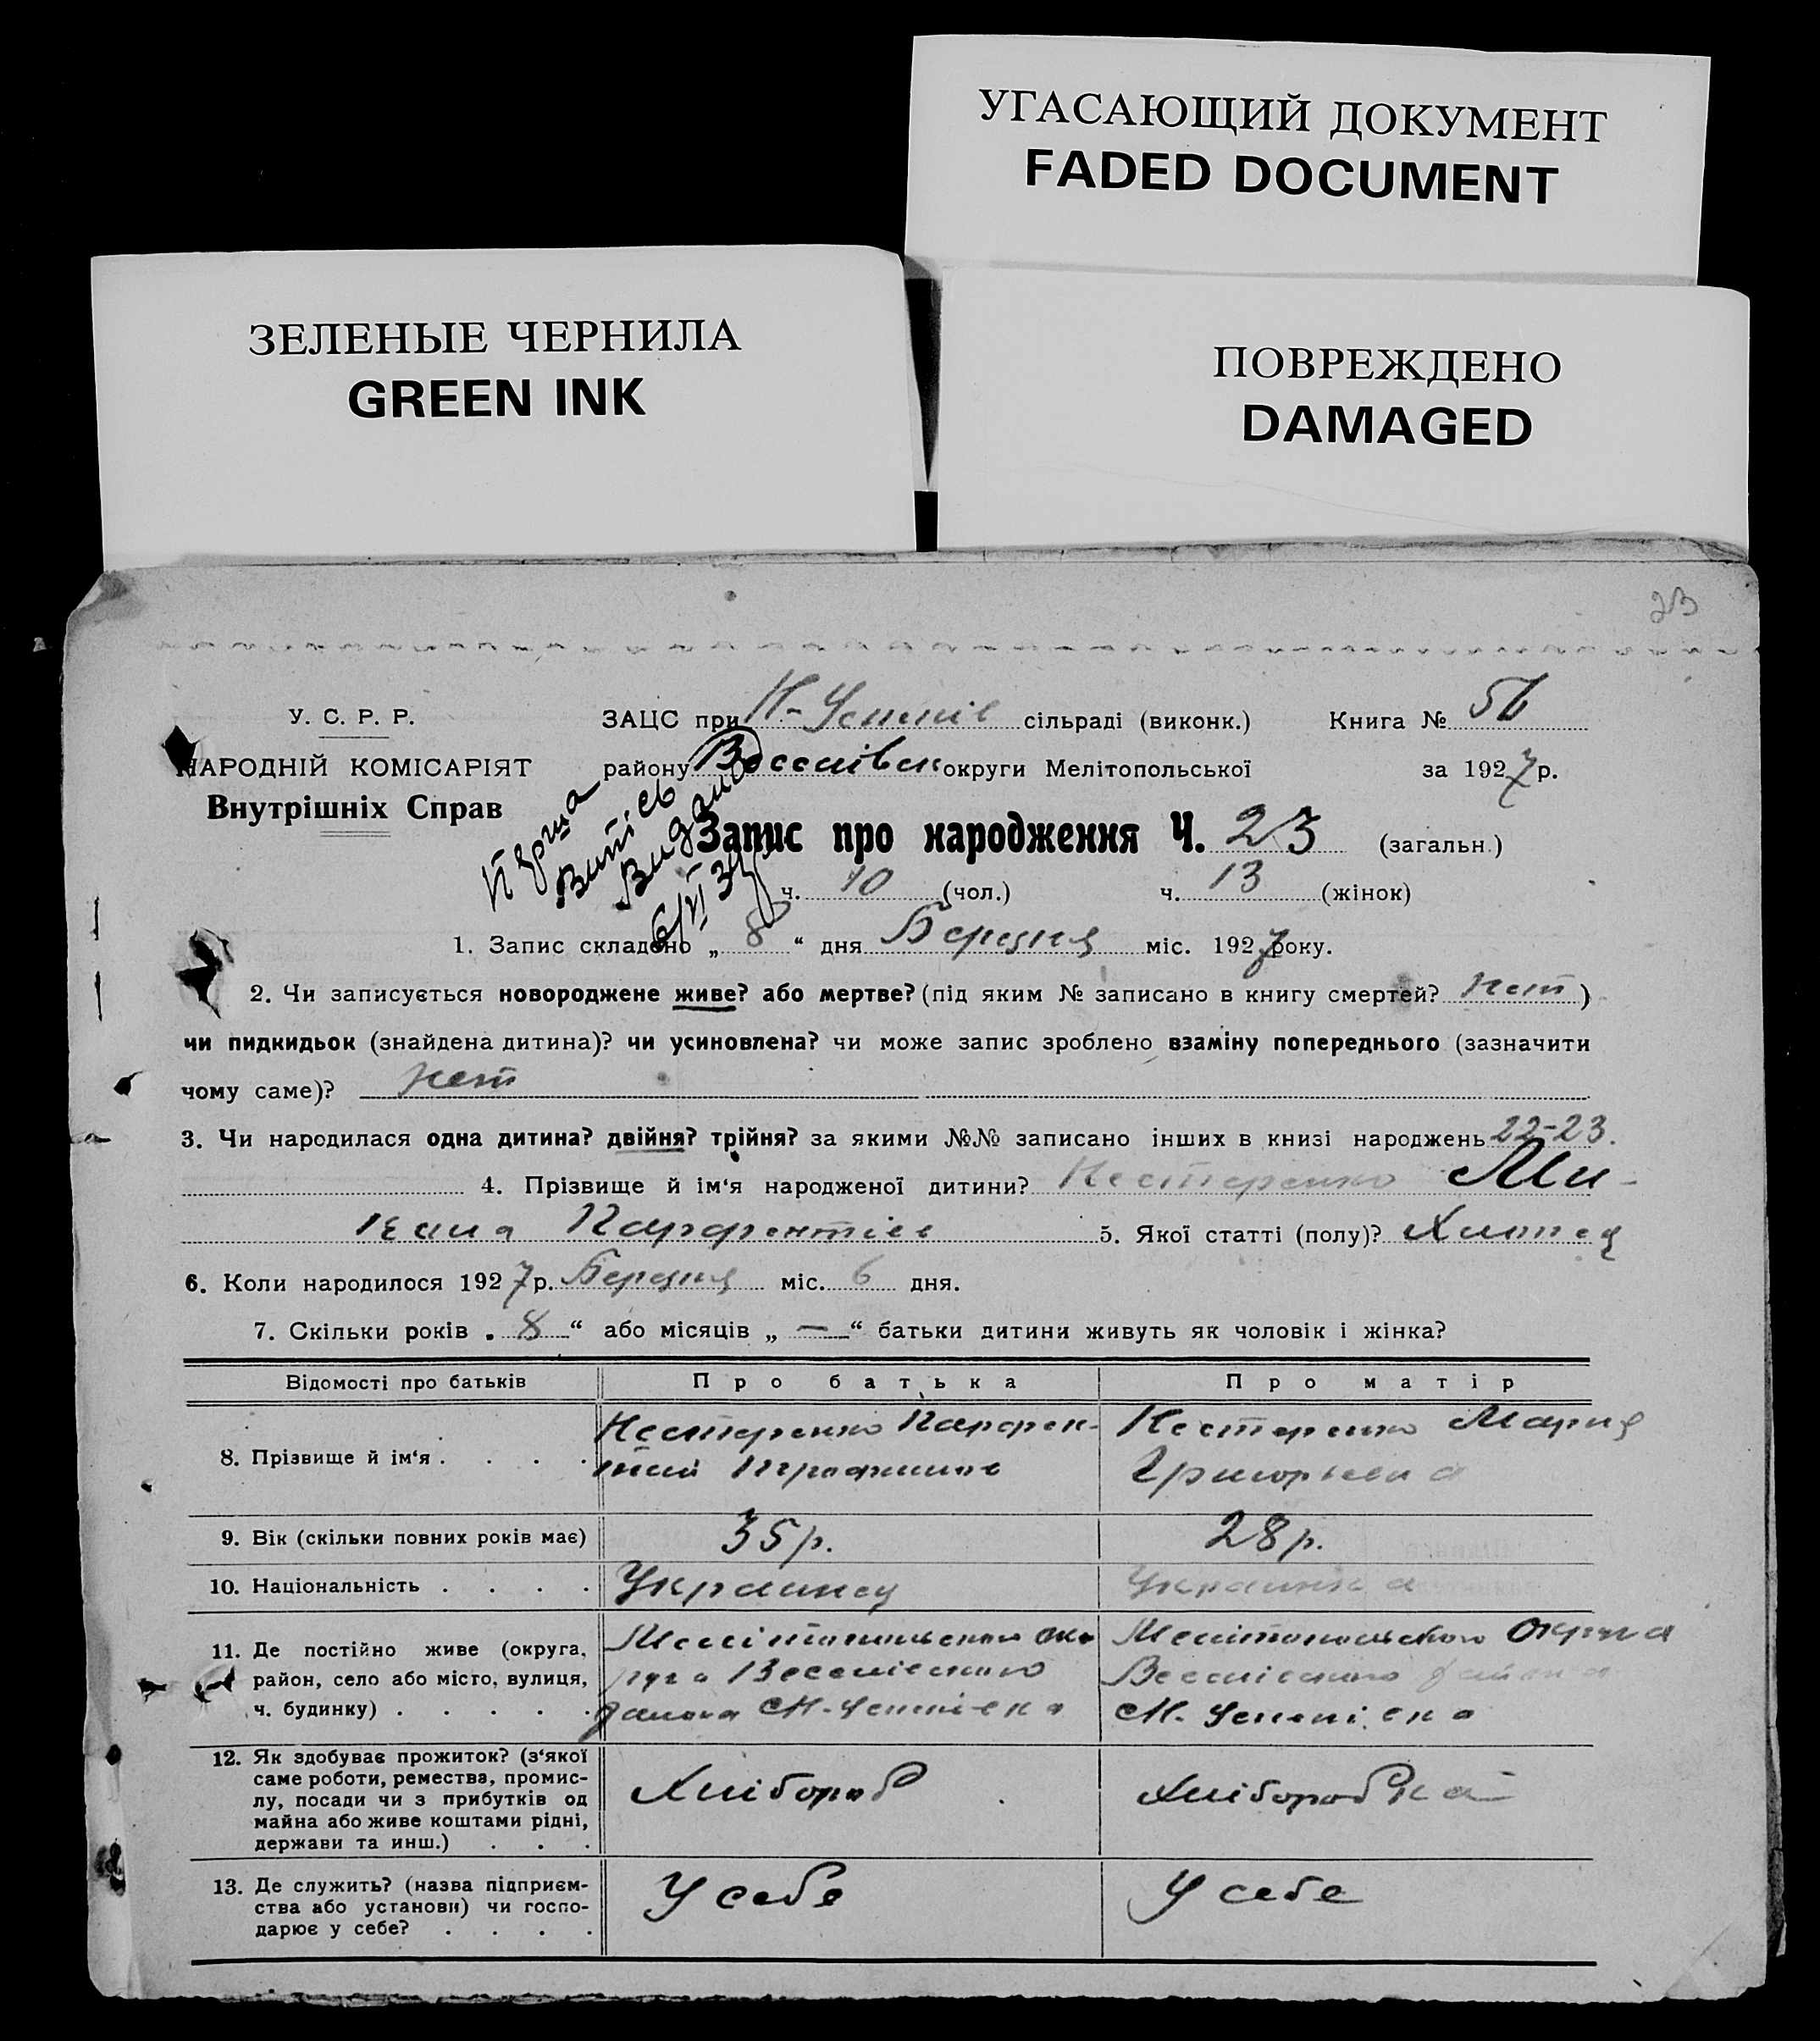 УГАСАЮЩИЙ ДОКУМЕНТ
FADED DOCUMENT
ЗЕЛЕНЫЕ ЧЕРНИЛА
GREEN INK
ПОВРЕЖДЕНО
DAMAGED
23
У. С. Р. Р.
НАРОДНІЙ КОМІСАРІЯТ
Внутрішніх Справ
ЗАЦС при Н-Успенів сільраді (виконк.) Книга № 56
району Веселівськ округи Мелітопольської за 1927 р.
Перша
Витісь
Видано
6/VI 34р
Запис про народження Ч. 23 (загальн.)
ч. 10 (чол.) ч. 13 (жінок)
1. Запис складено „ 8 “ дня Березня міс. 1927 року.
2. Чи записується новороджене живе? або мертве? (під яким № записано в книгу смертей? нет )
чи пидкидьок (знайдена дитина)? чи усиновлена? чи може запис зроблено взаміну попереднього (зазначити
чому саме)? нет
3. Чи народилася одна дитина? двійня? трійня? за якими №№ записано інших в книзі народжень 22-23.
4. Прізвище й ім‘я народженої дитини? Нестеренко Ми-
хаила Парфентієв 5. Якої статті (полу)? Хлопец
6. Коли народилося 1927 р. Березня міс. 6 дня.
7. Скільки років „ 8 “ або місяців „ — “ батьки дитини живуть як чоловік і жінка?
Відомості про батьків Про батька Про матір
8. Прізвище й ім‘я . . . . Нестеренко Парфен- Нестеренко Мария
тий Трофимов Григорьевна
9. Вік (скільки повних років має) 35 р. 28 р.
10. Національність . . . . Украинец Украинка
11. Де постійно живе (округа, Мелітопольського Окр Мелітопольского Округа
район, село або місто, вулиця, уга Веселівского Веселівского района
ч. будинку) . . . . . района С Н-Успенівка С Н- Успенівка
12. Як здобуває прожиток? (з‘якої
саме роботи, ремества, промис-
лу, посади чи з прибутків од Хлібороб Хліборобка
майна або живе коштами рідні,
держави та инш.) . . .
13. Де служить? (назва підприєм-
ства або установи) чи госпо- У себе У себе
дарює у себе? . . . .